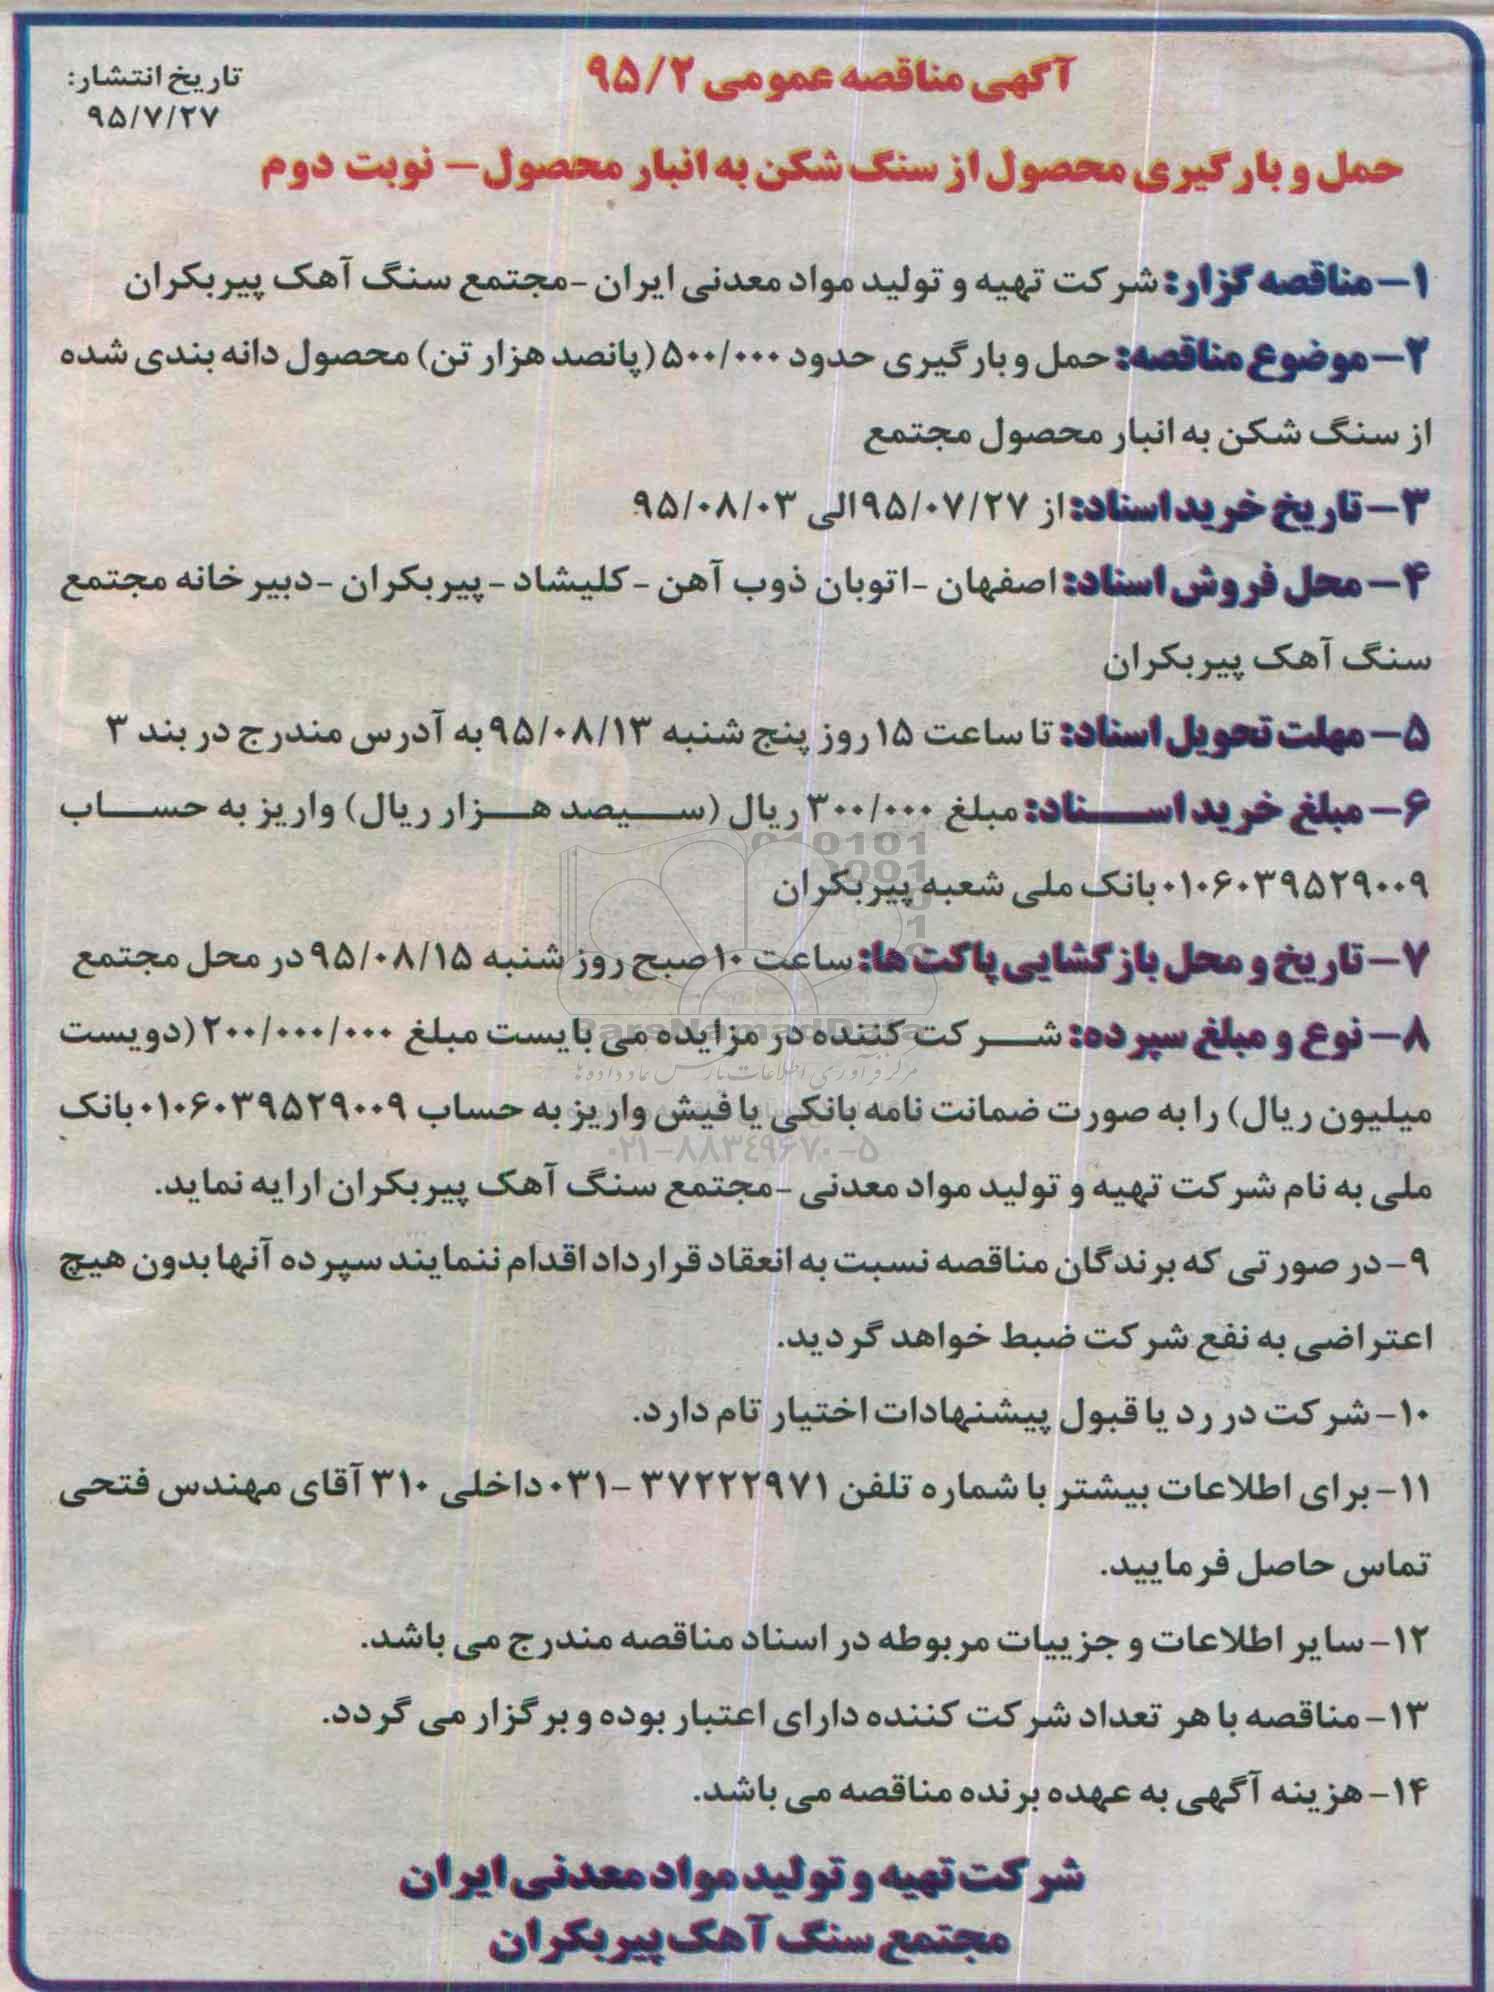 آگهی مناقصه عمومی ۹۵/۲
تاریخ انتشار:
۹۵/۷/۲۷
حمل و بارگیری محصول از سنگ شکن به انبار محصول – نوبت دوم
۱- مناقصه گزار: شرکت تهیه و تولید مواد معدنی ایران -مجتمع سنگ آهک پیربکران
۲- موضوع مناقصه: حمل و بارگیری حدود ۵۰۰/۰۰۰ (پانصد هزار تن) محصول دانه بندی شده
از سنگ شکن به انبار محصول مجتمع
۳- تاریخ خرید اسناد: از ۹۵/۰۷/۲۷ الی ۹۵/۰۸/۰۳
۴- محل فروش اسناد: اصفهان -اتوبان ذوب آهن -کلیشاد -پیربکران -دبیرخانه مجتمع
سنگ آهک پیربکران
۵- مهلت تحویل اسناد: تا ساعت ۱۵ روز پنج شنبه ۹۵/۰۸/۱۳ به آدرس مندرج در بند ۳
۶- مبلغ خرید اسناد: مبلغ ۳۰۰/۰۰۰ ریال (سیصد هزار ریال) واریز به حساب
۰۱۰۶۰۳۹۵۲۹۰۰۹ بانک ملی شعبه پیربکران
۷- تاریخ و محل بازگشایی پاکت ها: ساعت ۱۰ صبح روز شنبه ۹۵/۰۸/۱۵ در محل مجتمع
۸- نوع و مبلغ سپرده: شرکت کننده در مزایده می بایست مبلغ ۲۰۰/۰۰۰/۰۰۰ (دویست
ParsNamadData
مرکز فرآوری اطلاعات پارس نماد داده ها
میلیون ریال) را به صورت ضمانت نامه بانکی یا فیش واریز به حساب ۰۱۰۶۰۳۹۵۲۹۰۰۹ بانک
۰۲۱-۸۸۳۴۹۶۷۰-۵
ملی به نام شرکت تهیه و تولید مواد معدنی -مجتمع سنگ آهک پیربکران ارایه نماید.
۹- در صورتی که برندگان مناقصه نسبت به انعقاد قرارداد اقدام ننمایند سپرده آنها بدون هیچ
اعتراضی به نفع شرکت ضبط خواهد گردید.
۱۰- شرکت در رد یا قبول پیشنهادات اختیار تام دارد.
۱۱- برای اطلاعات بیشتر با شماره تلفن ۳۷۲۲۲۹۷۱ -۰۳۱ داخلی ۳۱۰ آقای مهندس فتحی
تماس حاصل فرمایید.
۱۲- سایر اطلاعات و جزییات مربوطه در اسناد مناقصه مندرج می باشد.
۱۳- مناقصه با هر تعداد شرکت کننده دارای اعتبار بوده و برگزار می گردد.
۱۴- هزینه آگهی به عهده برنده مناقصه می باشد.
شرکت تهیه و تولید مواد معدنی ایران
مجتمع سنگ آهک پیربکران